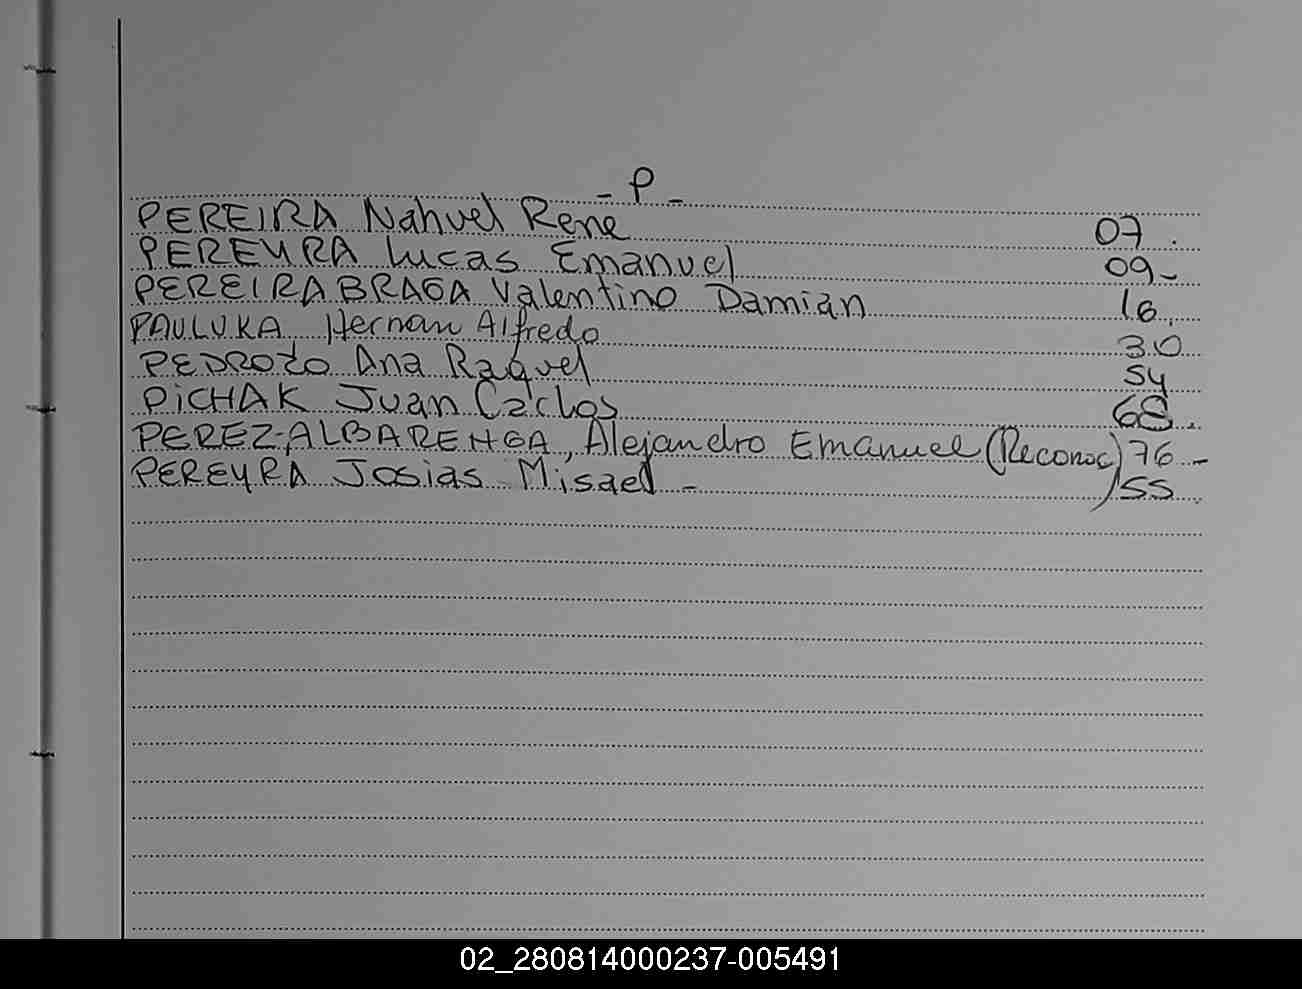 - P -
PEREIRA Nahuel Rene 07.
PEREYRA Lucas Emanuel 09-
PEREIRA BRAGA Valentino Damian 16.
PAULUKA Hernan Alfredo 30
PEDROZO Ana Raquel 54
PiCHAK Juan Carlos 68.
PEREZ-ALBARENGA, Alejandro Emanuel (Reconoc) 76-
PEREYRA Josias Misael - 55.
02_280814000237-005491